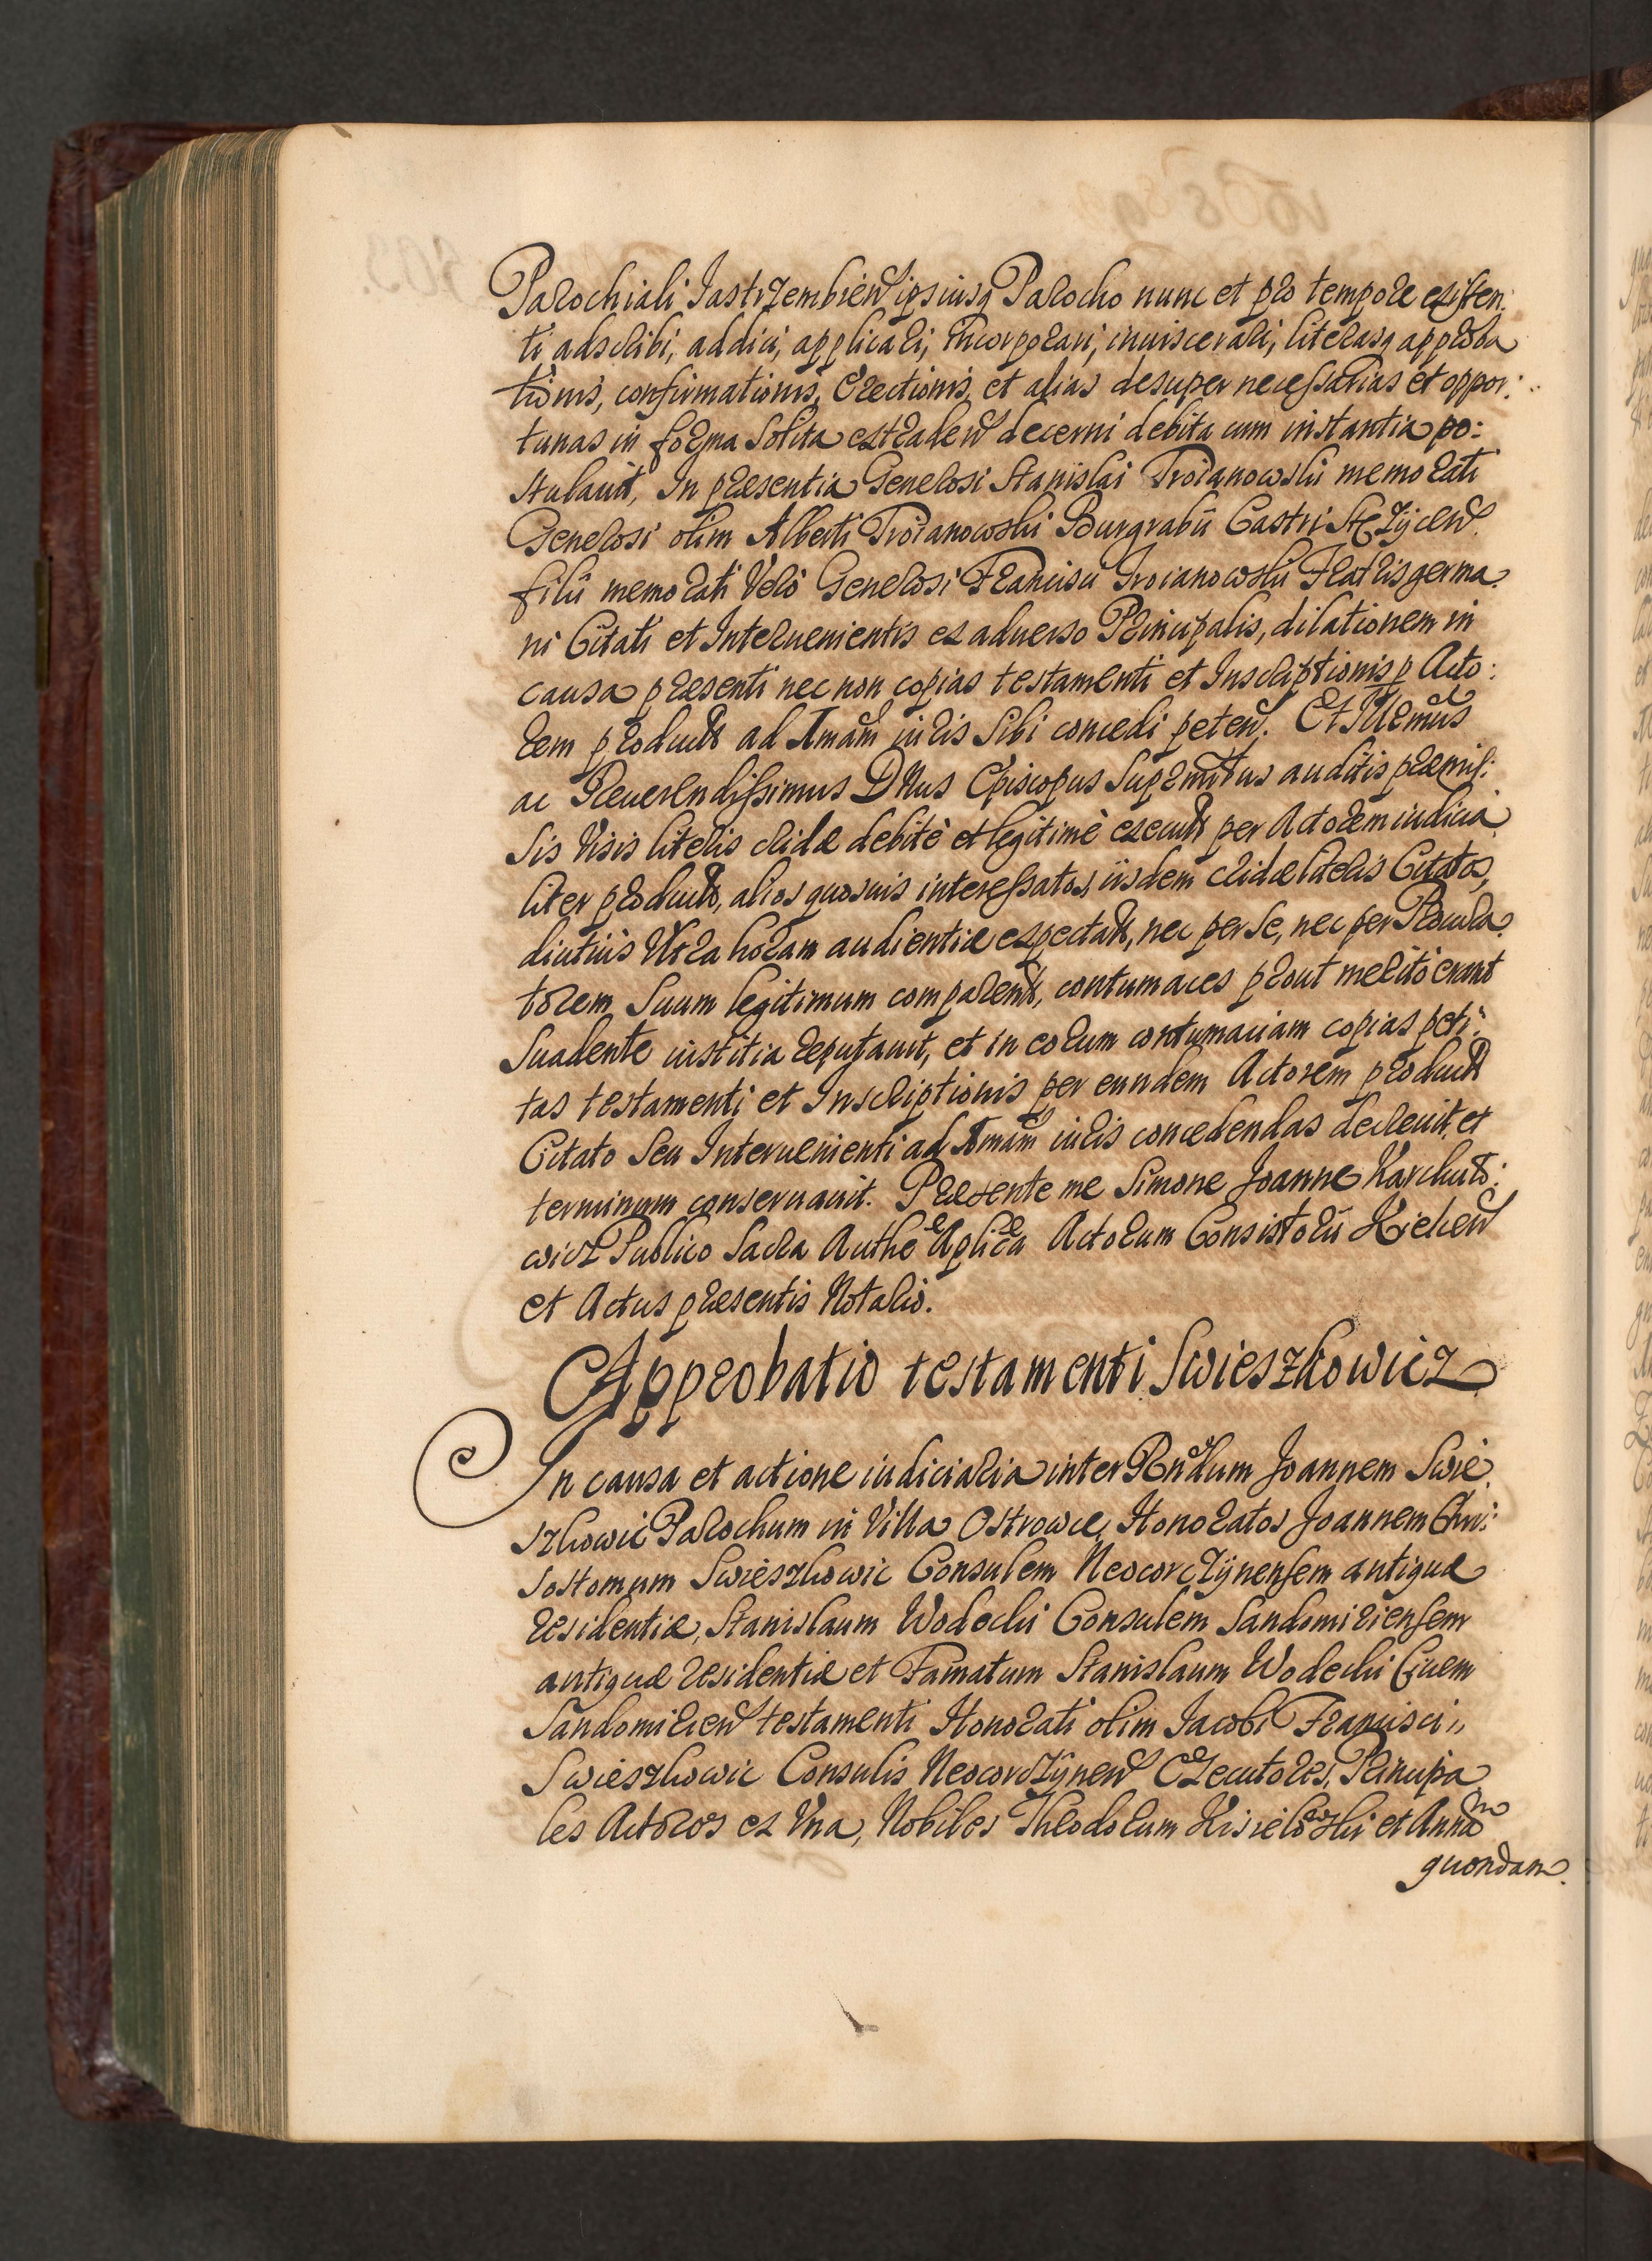 Parochiali Jastrzembien ipsiusq Parocho nunc et pro tempore existen:
ti adscribi, addici, applicari, incorporari, inuiscerari, literasq approba
tionis, confirmationis, Erectionis, et alias desuper necessarias et oppor:
tunas in forma solita extraden decerni debita cum instantia po:
stulauit, In praesentia Generosi Stanislai Troianowski memorati
Generosi olim Alberti Troianowski Burgrabii Castri Stezycen
filii memorati Vero Generosi Francisci Troianowski Fratris germa
ni Citati et Interuenientis ex aduerso Principalis, dilationem in
causa praesenti nec non copias testamenti et Inscriptionis p Acto:
rem product ad Amam iuris sibi concedi peten. Et Illrmus
ac Reuerendissimus DNus Episcopus Suprmtus auditis praemis:
sis Visis literis cridae debitè et legitimè execut per Actorem iudicia
liter product, alios quosuis interessatos iisdem cridae literis Citatos,
diutius Ultra horam audientiae expectat, nec per se, nec per Procura
torem suum legitimum comparent, contumaces prout meritò erant
Suadente iustitia reputauit, et in eorum contumaciam copias peti:
tas testamenti et Inscriptionis per eundem Actorem product
Citato seu Interuenienti ad Amam iuris concedendas decreuit, et
terminum conseruauit. Praesente me Simone Joanne Karchuto:
wicz Publico Sacra Authe Aplica Actorum Consistorii Kielcen
et Actus praesentis Notario.
Approbatio testamenti Swieszkowicz
In causa et actione iudiciaria inter Rndum Joannem Swie
szkowic Parochum in Villa Ostrowce, Honoratos Joannem Chri:
sostomum Swieszkowic Consulem Neocorczynensem antiquae
residentiae, Stanislaum Wodecki Consulem Sandomiriensem
antiquae residentiae et Famatum Stanislaum Wodecki Ciuem
Sandomirien testamenti Honorati olim Jacobi Francisci
Swieszkowic Consulis Neocorczynen Executores, Principa
les Actores ex Vna, Nobiles Theodorum Kisielowski et Annam
quondam